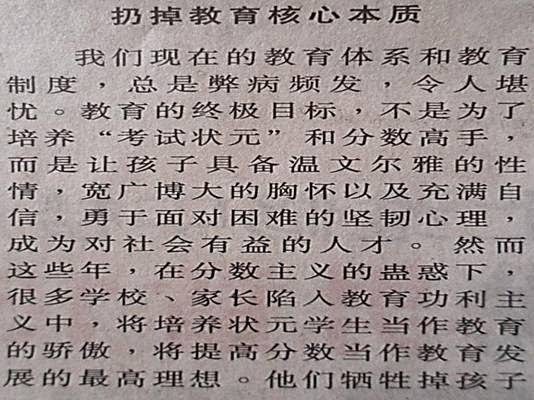 扔掉教育核心本质
我们现在的教育体系和教育
制度，总是弊病频发，令人堪
忧。教育的终极目标，不是为了
培养“考试状元”和分数高手，
而是让孩子具备温文尔雅的性
情，宽广博大的胸怀以及充满自
信，勇于面对困难的坚韧心理，
成为对社会有益的人才。然而
这些年，在分数主义的蛊惑下，
很多学校、家长陷入教育功利主
义中，将培养状元学生当作教育
的骄傲，将提高分数当作教育发
展的最高理想。他们牺牲掉孩子